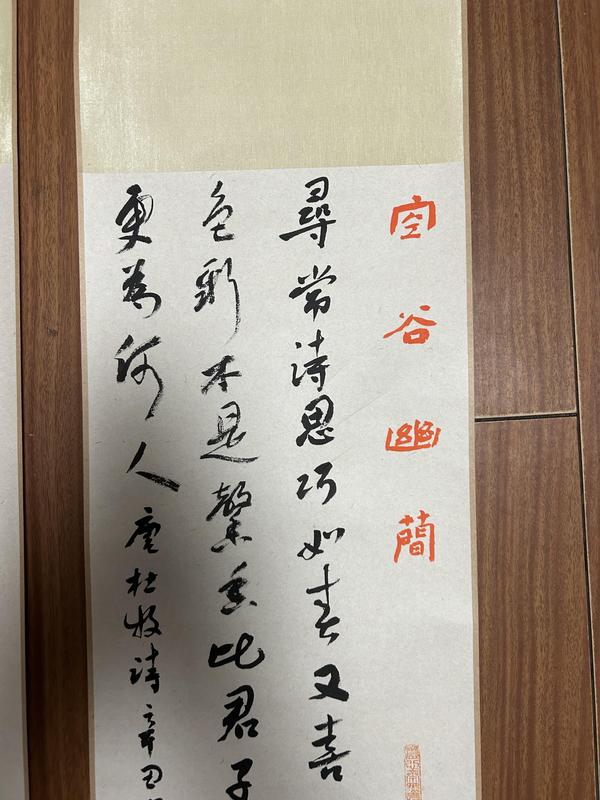 空谷幽蕳
尋常詩思巧如春又喜
色彩本是馨香比君子
更為何人唐杜牧詩辛丑